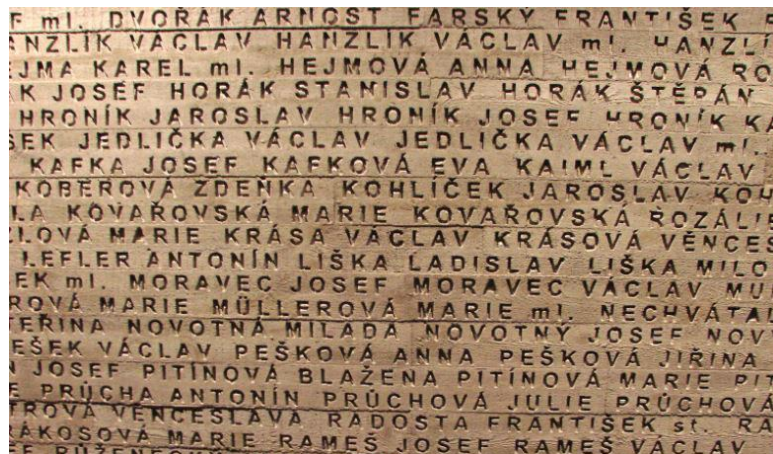 F ml. DVOŘÁK ARNOŠT FARSKÝ FRANTIŠEK
VÁCLAV HANZLÍK VÁCLAV ml.
KAREL ml. HEJMOVÁ ANNA HEJMOVÁ
JOSEF HORÁK STANISLAV HORÁK ŠTĚPÁN
HRONÍK JAROSLAV HRONÍK JOSEF HRONÍK
JEDLIČKA VÁCLAV JEDLIČKA VÁCLAV ml.
KAFKA JOSEF KAFKOVÁ EVA KAIML VÁCLAV
KOBEROVÁ ZDEŇKA KOHLÍČEK JAROSLAV KOH
LA KOVAŘOVSKÁ MARIE KOVAŘOVSKÁ ROZÁLIE
ZLOVÁ MARIE KRÁSA VÁCLAV KRÁSOVÁ VĚNCES
LEFLER ANTONÍN LIŠKA LADISLAV LIŠKA MILO
EK ml. MORAVEC JOSEF MORAVEC VÁCLAV
ROVÁ MARIE MÜLLEROVÁ MARIE ml. NECHVÁTAL
TEŘINA NOVOTNÁ MILADA NOVOTNÝ JOSEF NOV
EŠEK VÁCLAV PEŠKOVÁ ANNA PEŠKOVÁ JIŘINA
JOSEF PITÍNOVÁ BLAŽENA PITÍNOVÁ MARIE PIT
PRŮCHA ANTONÍN PRŮCHOVÁ JULIE PRŮCHOVÁ
TROVÁ VĚNCESLAVA RADOSTA FRANTIŠEK st. RA
RÁKOSOVÁ MARIE RAMEŠ JOSEF RAMEŠ VÁCLAV